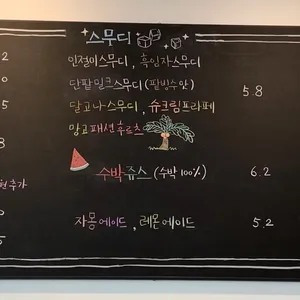 스무디
2
인절미스무디, 흑임자스무디
0
단팥밀크스무디(팥빙수맛)
5.8
5
달고나스무디, 슈크림프라페
망고패션후르츠
8
수박쥬스 (수박 100%)
6.2
현추가
0
자몽에이드, 레몬에이드
5.2
5